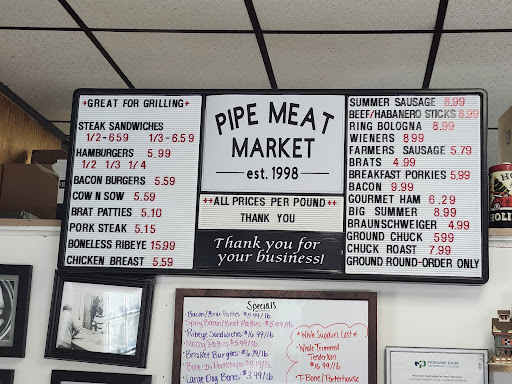 +GREAT FOR GRILLING+
STEAK SANDWICHES
1/2-6 59 1/3-6.5 9
HAMBURGERS 5.99
1/2 1/3 1/4
BACON BURGERS 5.59
COW N SOW 5.59
BRAT PATTIES 5.10
PORK STEAK 5.15
BONELESS RIBEYE 15.99
CHICKEN BREAST 5.59
PIPE MEAT
MARKET
est. 1998
++ALL PRICES PER POUND++
THANK YOU
Thank you for
your business!
SUMMER SAUSAGE 8.99
BEEF/HABANERO STICKS 8.99
RING BOLOGNA 8.99
WIENERS 8.99
FARMERS SAUSAGE 5.79
BRATS 4.99
BREAKFAST PORKIES 5.99
BACON 9.99
GOURMET HAM 6.29
BIG SUMMER 8.99
BRAUNSCHWEIGER 4.99
GROUND CHUCK 5.99
CHUCK ROAST 7.99
GROUND ROUND-ORDER ONLY
Specials
Bacon/Brat Patties
Spicy Bacon/Brat Patties
Ribeye Sandwiches
Patties
Brisket Burgers
Large Dog Bones
While Supplies Last
Whole Trimmed
Tenderloin
T-Bone/Porterhouse